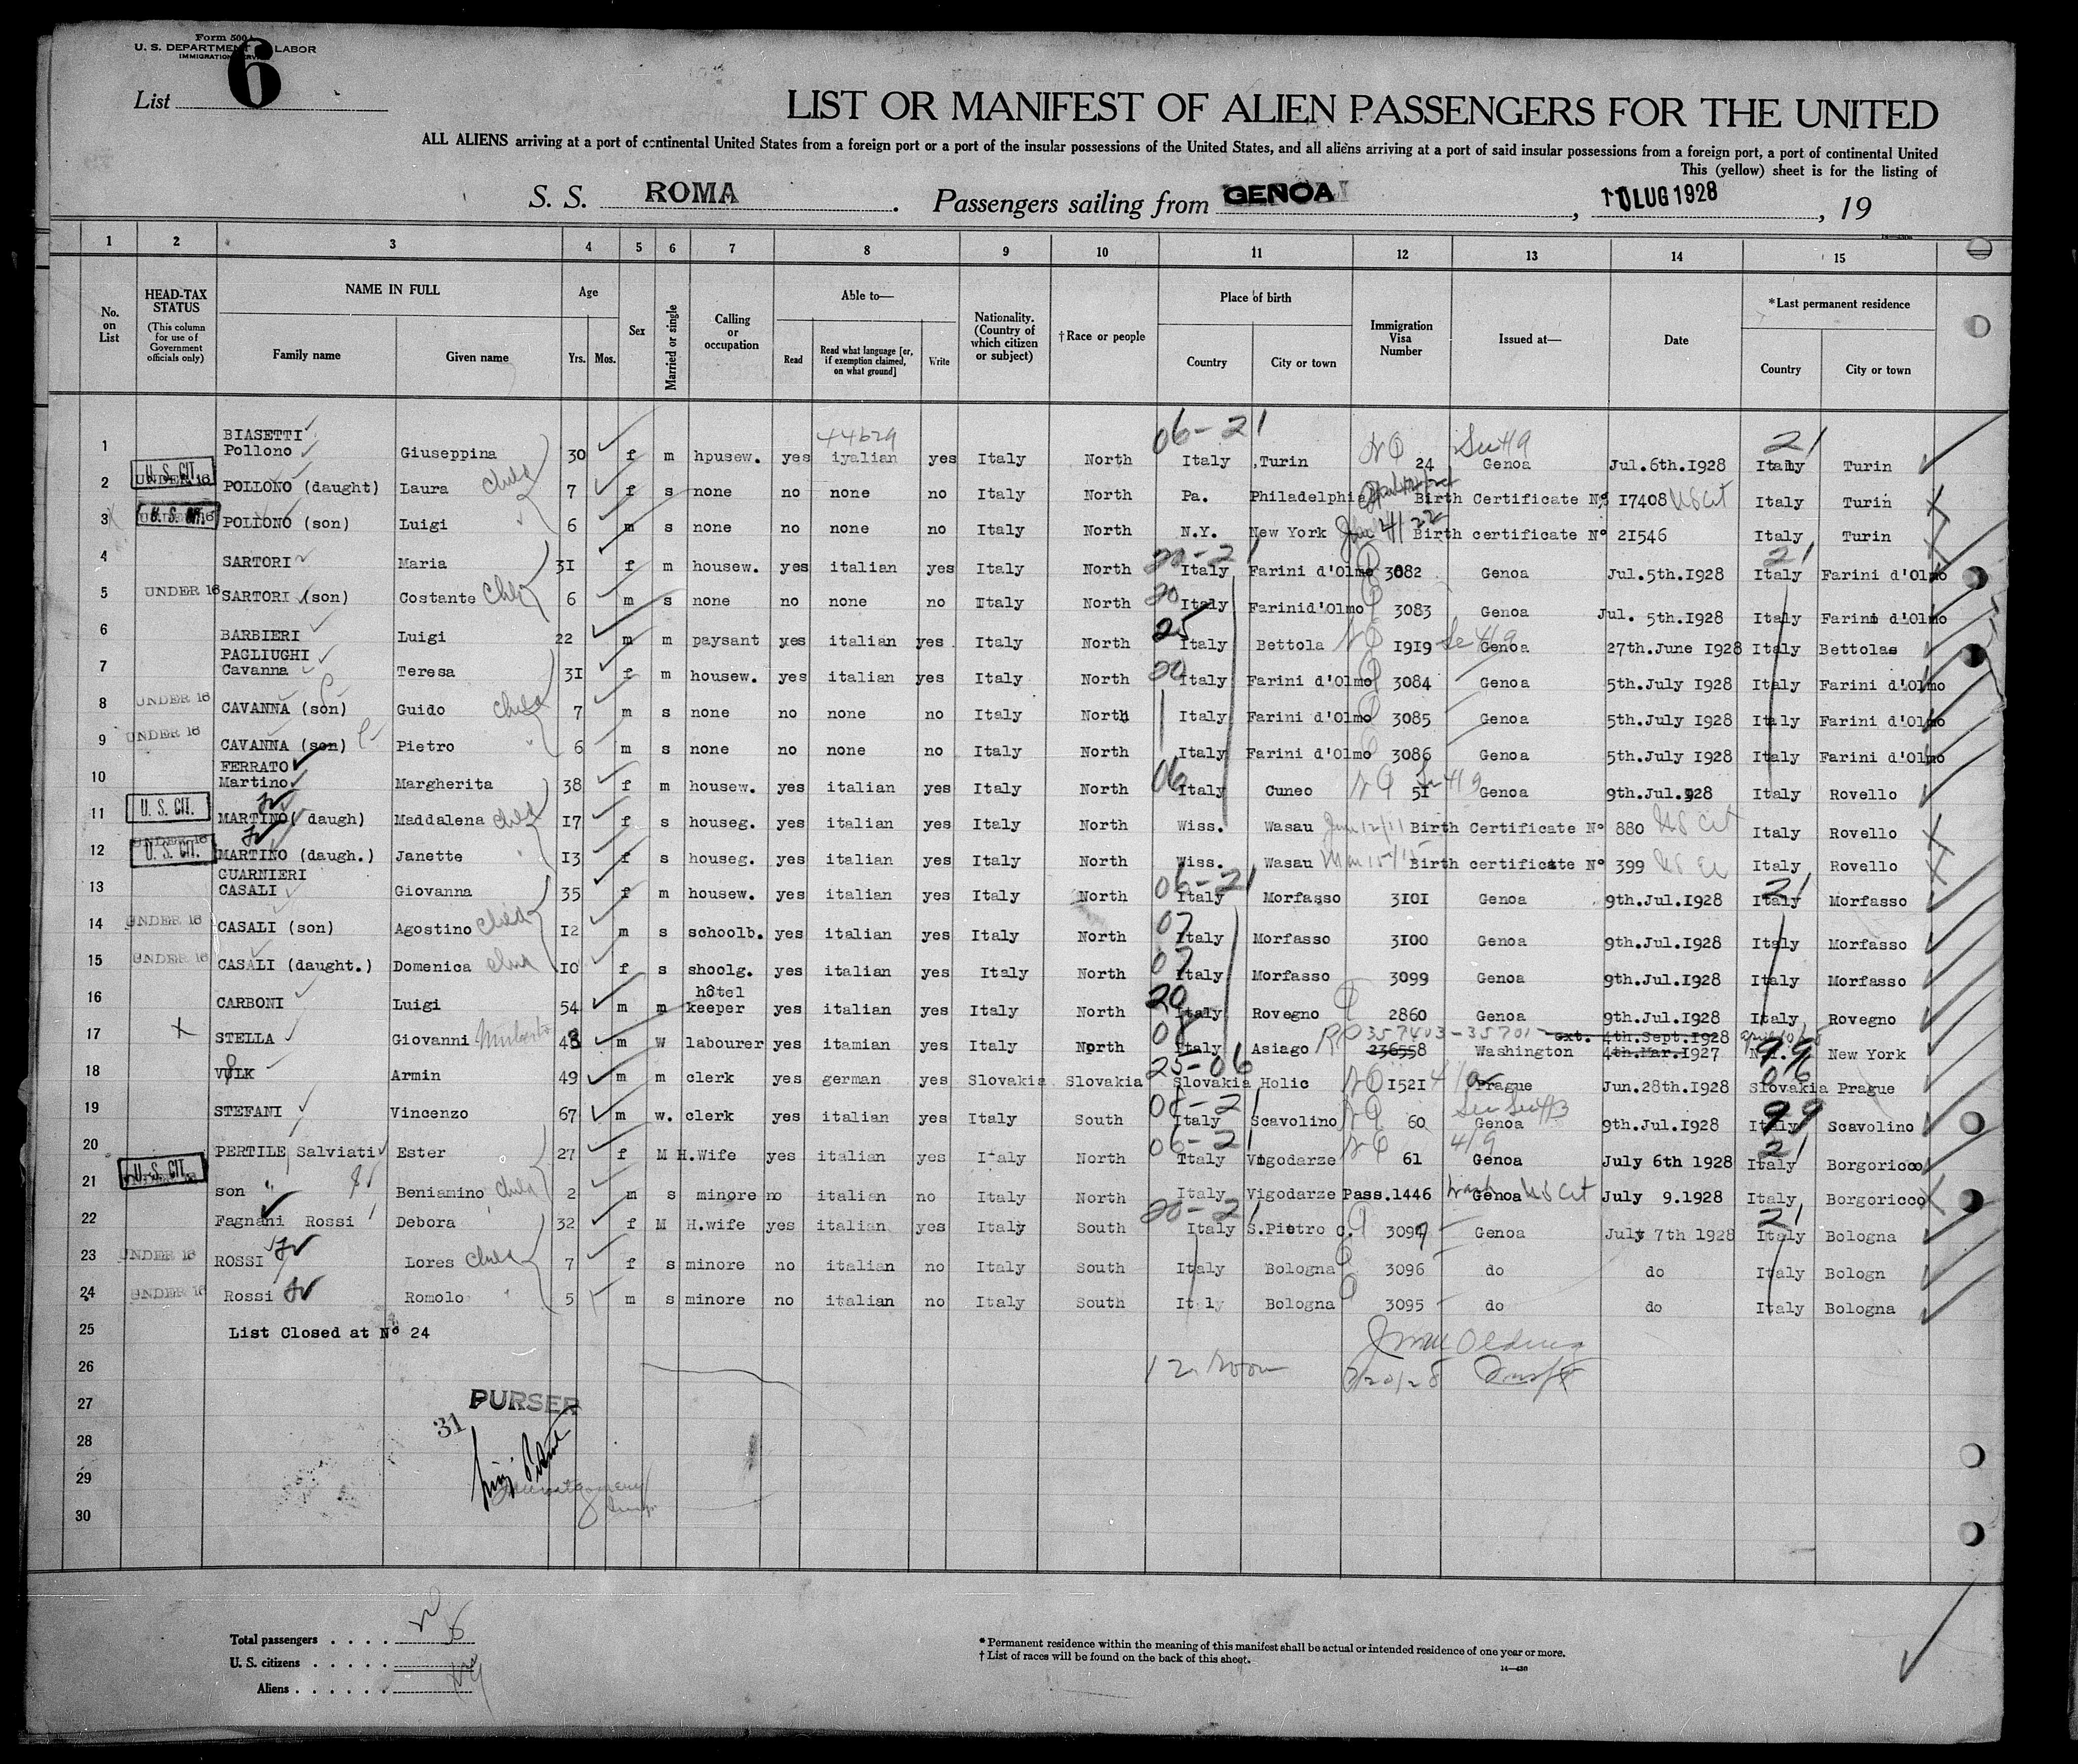 Form 500
U. S. DEPARTMENT LABOR
IMMIGRATION SERVICE
List 6
LIST OR MANIFEST OF ALIEN PASSENGERS FOR THE UNITED
ALL ALIENS arriving at a port of continental United States from a foreign port or a port of the insular possessions of the United States, and all aliens arriving at a port of said insular possessions from a foreign port, a port of continental United
This (yellow) sheet is for the listing of
S. S. ROMA. Passengers sailing from GENOA, 10 LUG 1928, 19
1 2 3 4 5 6 7 8 9 10 11 12 13 14 15
No. on List
HEAD-TAX STATUS (This column for use of Government officials only)
NAME IN FULL Family name Given name
Age Yrs. Mos.
Sex
Married or single
Calling or occupation
Able to— Read Read what language [or, if exemption claimed, on what ground] Write
Nationality. (Country of which citizen or subject)
†Race or people
Place of birth Country City or town
Immigration Visa Number
Issued at—
Date
*Last permanent residence Country City or town
06-21 21
BIASETTI 44629
1 Pollono Giuseppina 30 f m hpusew. yes iyalian yes Italy North Italy Turin 24 Genoa Jul.6th.1928 Italy Turin
2 U. S. CIT. UNDER 16 POLLONO (daught) Laura child 7 f s none no none no Italy North Pa. Philadelphia Birth Certificate Nº 17408 US Cit Italy Turin
3 U. S. CIT. POLLONO (son) Luigi 6 m s none no none no Italy North N.Y. New York Birth certificate Nº 21546 Italy Turin
4 SARTORI Maria 31 f m housew. yes italian yes Italy North Italy Farini d'Olmo 3082 Genoa Jul.5th.1928 Italy Farini d'Olmo
5 UNDER 16 SARTORI (son) Costante child 6 m s none no none no Italy North 20 Italy Farinid'Olmo 3083 Genoa Jul. 5th.1928 Italy Farini d'Olmo
6 BARBIERI Luigi 22 m m paysant yes italian yes Italy North 25 Italy Bettola 1919 Genoa 27th.June 1928 Italy Bettolae
PAGLIUGHI
7 Cavanna Teresa 31 f m housew. yes italian yes Italy North 20 Italy Farini d'Olmo 3084 Genoa 5th.July 1928 Italy Farini d'Olmo
8 UNDER 16 CAVANNA (son) Guido child 7 m s none no none no Italy North Italy Farini d'Olmo 3085 Genoa 5th.July 1928 Italy Farini d'Olmo
9 UNDER 16 CAVANNA (son) Pietro 6 m s none no none no Italy North Italy Farini d'Olmo 3086 Genoa 5th.July 1928 Italy Farini d'Olmo
FERRATO
10 Martino Margherita 38 f m housew. yes italian yes Italy North 06 Italy Cuneo 51 Genoa 9th.Jul.1928 Italy Rovello
11 U. S. CIT. MARTINO( daugh) Maddalena child 17 f s houseg. yes italian yes Italy North Wiss. Wasau Birth Certificate Nº 880 US Cit Italy Rovello
12 UNDER 16 U. S. CIT. MARTINO (daugh.) Janette 13 f s houseg. yes italian yes Italy North Wiss. Wasau Birth certificate Nº 399 Italy Rovello
GUARNIERI
13 CASALI Giovanna 35 f m housew. yes italian yes Italy North 06-21 Italy Morfasso 3101 Genoa 9th.Jul.1928 21 Italy Morfasso
14 UNDER 16 CASALI (son) Agostino child 12 m s schoolb. yes italian yes Italy North 07 Italy Morfasso 3100 Genoa 9th.Jul.1928 Italy Morfasso
15 UNDER 16 CASALI (daught.) Domenica child 10 f s shoolg. yes italian yes Italy North 07 Italy Morfasso 3099 Genoa 9th.Jul.1928 Italy Morfasso
16 CARBONI Luigi 54 m m hôtel keeper yes italian yes Italy North 20 Italy Rovegno 2860 Genoa 9th.Jul.1928 Italy Rovegno
RP 357403-35701 ext. 4th.Sept.1928
17 STELLA Giovanni 48 m w labourer yes itamian yes Italy North 08 Italy Asiago 236558 Washington 4th.Mar.1927 N.Y. New York
18 VULK Armin 49 m m clerk yes german yes Slovakia Slovakia 25-06 Slovakia Holic 1521 Prague Jun.28th.1928 06 Slovakia Prague
19 STEFANI Vincenzo 67 m w. clerk yes italian yes Italy South 06-21 Italy Scavolino 60 Genoa 9th.Jul.1928 99 Italy Scavolino
20 PERTILE Salviati Ester 27 f M H.Wife yes italian yes Italy North 06-21 Italy Vigodarze 61 4/9 Genoa July 6th 1928 21 Italy Borgoricco
21 U. S. CIT. son " Beniamino child 2 m s minore no italian no Italy North Italy Vigodarze Pass.1446 Genoa US Cit July 9.1928 Italy Borgoricco
22 Fagnani Rossi Debora 32 f M H.wife yes italian yes Italy South 20-21 Italy S.Pietro C. 3097 Genoa July 7th 1928 21 Italy Bologna
23 UNDER 16 ROSSI Lores child 7 f s minore no italian no Italy South Italy Bologna 3096 do do Italy Bologn
24 UNDER 16 Rossi Romolo 5 m s minore no italian no Italy South Italy Bologna 3095 do do Italy Bologna
25 List Closed at Nº 24
26 12 Noon 7/20/28
27 PURSER
31
28
29
30
Total passengers
U. S. citizens
Aliens
* Permanent residence within the meaning of this manifest shall be actual or intended residence of one year or more.
† List of races will be found on the back of this sheet.
14—430